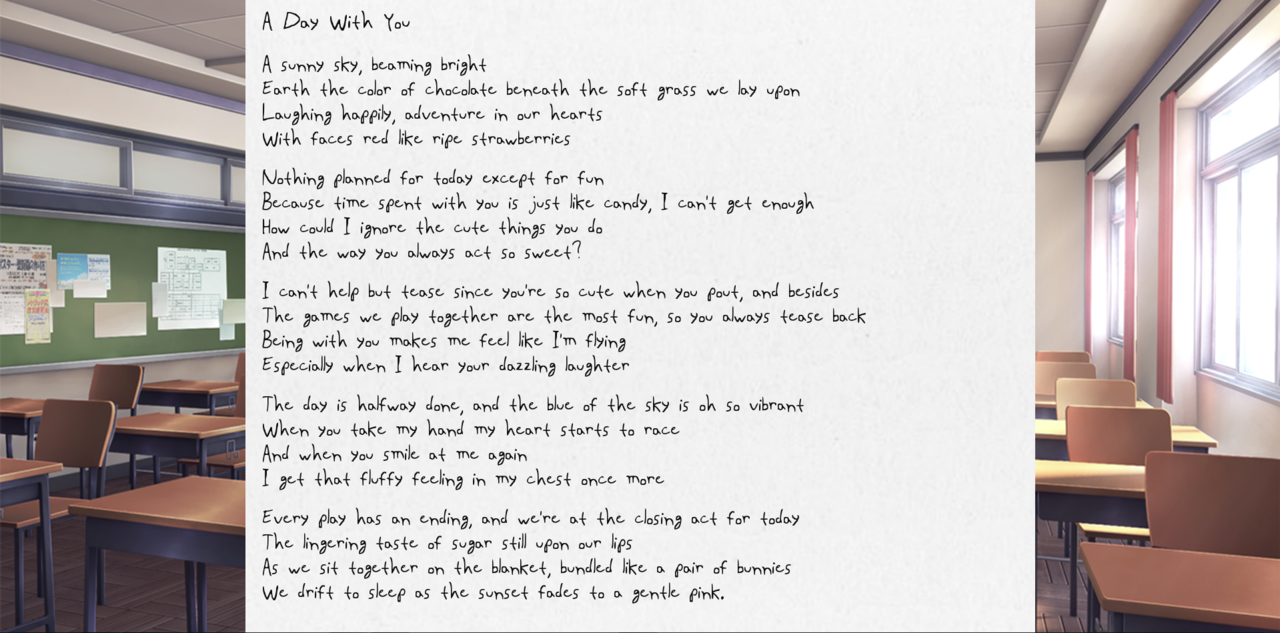 A Day With You
A sunny sky, beaming bright
Earth the color of chocolate beneath the soft grass we lay upon
Laughing happily, adventure in our hearts
With faces red like ripe strawberries
Nothing planned for today except for fun
Because time spent with you is just like candy, I can't get enough
How could I ignore the cute things you do
And the way you always act so sweet?
I can't help but tease since you're so cute when you pout, and besides
The games we play together are the most fun, so you always tease back
Being with you makes me feel like I'm flying
Especially when I hear your dazzling laughter
The day is halfway done, and the blue of the sky is oh so vibrant
When you take my hand my heart starts to race
And when you smile at me again
I get that fluffy feeling in my chest once more
Every play has an ending, and we're at the closing act for today
The lingering taste of sugar still upon our lips
As we sit together on the blanket, bundled like a pair of bunnies
We drift to sleep as the sunset fades to a gentle pink.